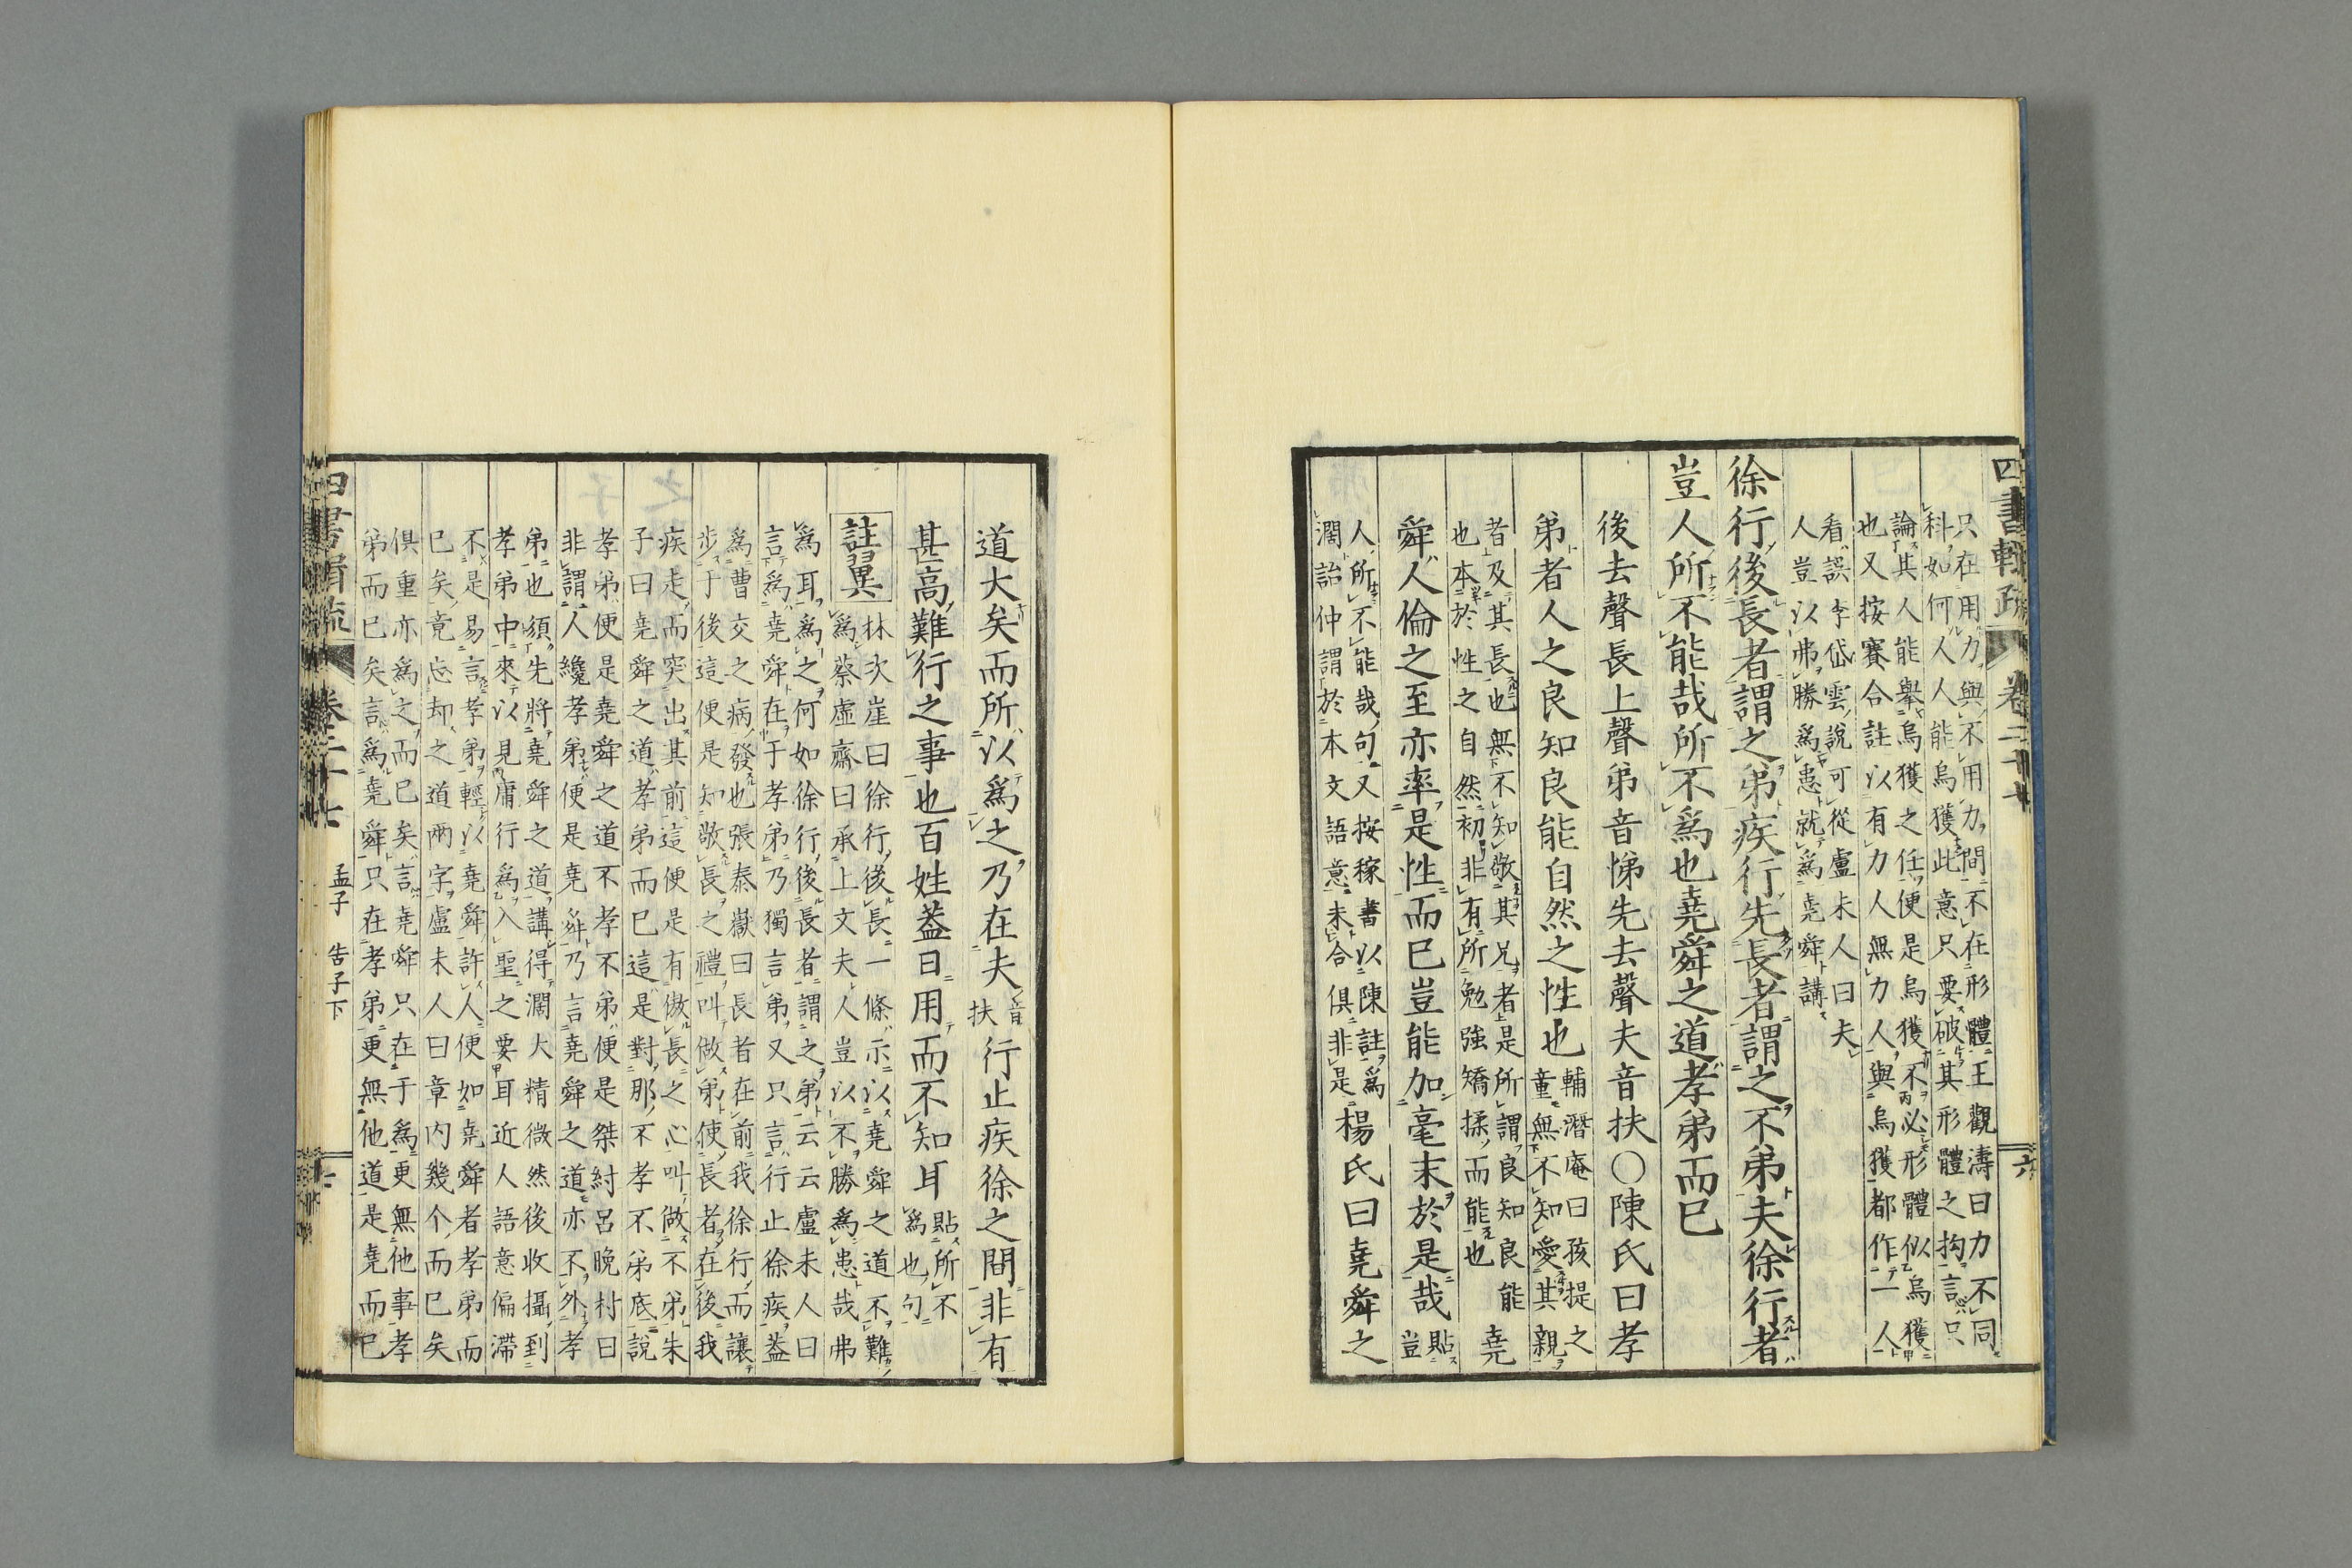 四書輯疏 卷二十七 六
只在用力與不用力間不在形體王觀濤曰力不同
科如何人人能烏獲此意只要破其形體之拘言只
論其人能舉烏獲之任便是烏獲不必形體似烏獲
也又按賽合註以有力人無力人與烏獲都作一人
看誤李岱雲說可從盧未人曰夫
人豈以弗勝為患就為堯舜講
徐行後長者謂之弟疾行先長者謂之不弟夫徐行者
豈人所不能哉所不為也堯舜之道孝弟而已
後去聲長上聲弟音悌先去聲夫音扶○陳氏曰孝
弟者人之良知良能自然之性也
輔潛庵曰孩提之
童無不知愛其親
者及其長也無不知敬其兄者是所謂良知良能
也本於性之自然初非有所勉強矯揉而能也
堯
舜人倫之至亦率是性而已豈能加毫末於是哉
貼
豈
人所不能哉句又按稼書以陳註為
濶詒仲謂於本文語意未合俱非是
楊氏曰堯舜之
道大矣而所以為之乃在夫
音
扶
行止疾徐之間非有
甚高難行之事也百姓蓋日用而不知耳
貼所不
為也句
註翼
林次崖曰徐行後長一條示以堯舜之道不難
為蔡虛齋曰承上文夫人豈以不勝為患哉弗
為耳為之何如徐行後長者謂之弟云云盧未人曰
言為堯舜在于孝弟乃獨言弟又只言行止徐疾蓋
為曹交之病發也張泰嶽曰長者在前我徐行而讓
步于後這便是知敬長之禮叫做弟使長者在後我
疾走而突出其前這便是有傲長之心叫做不弟朱
子曰堯舜之道孝弟而已這是對那不孝不弟底說
孝弟便是堯舜之道不孝不弟便是桀紂呂晚村曰
非謂人纔孝弟便是堯舜乃言堯舜之道亦不外孝
弟也須先將堯舜之道講得濶大精微然後收攝到
孝弟中來以見庸行為入聖之要耳近人語意偏滯
不是易言孝弟輕以堯舜許人便如堯舜者孝弟而
已矣竟忘却之道兩字盧未人曰章內幾个而已矣
俱重亦為之而已矣言堯舜只在于為更無他事孝
弟而已矣言為堯舜只在孝弟更無他道是堯而已
四書輯疏 卷二十七 孟子 告子下